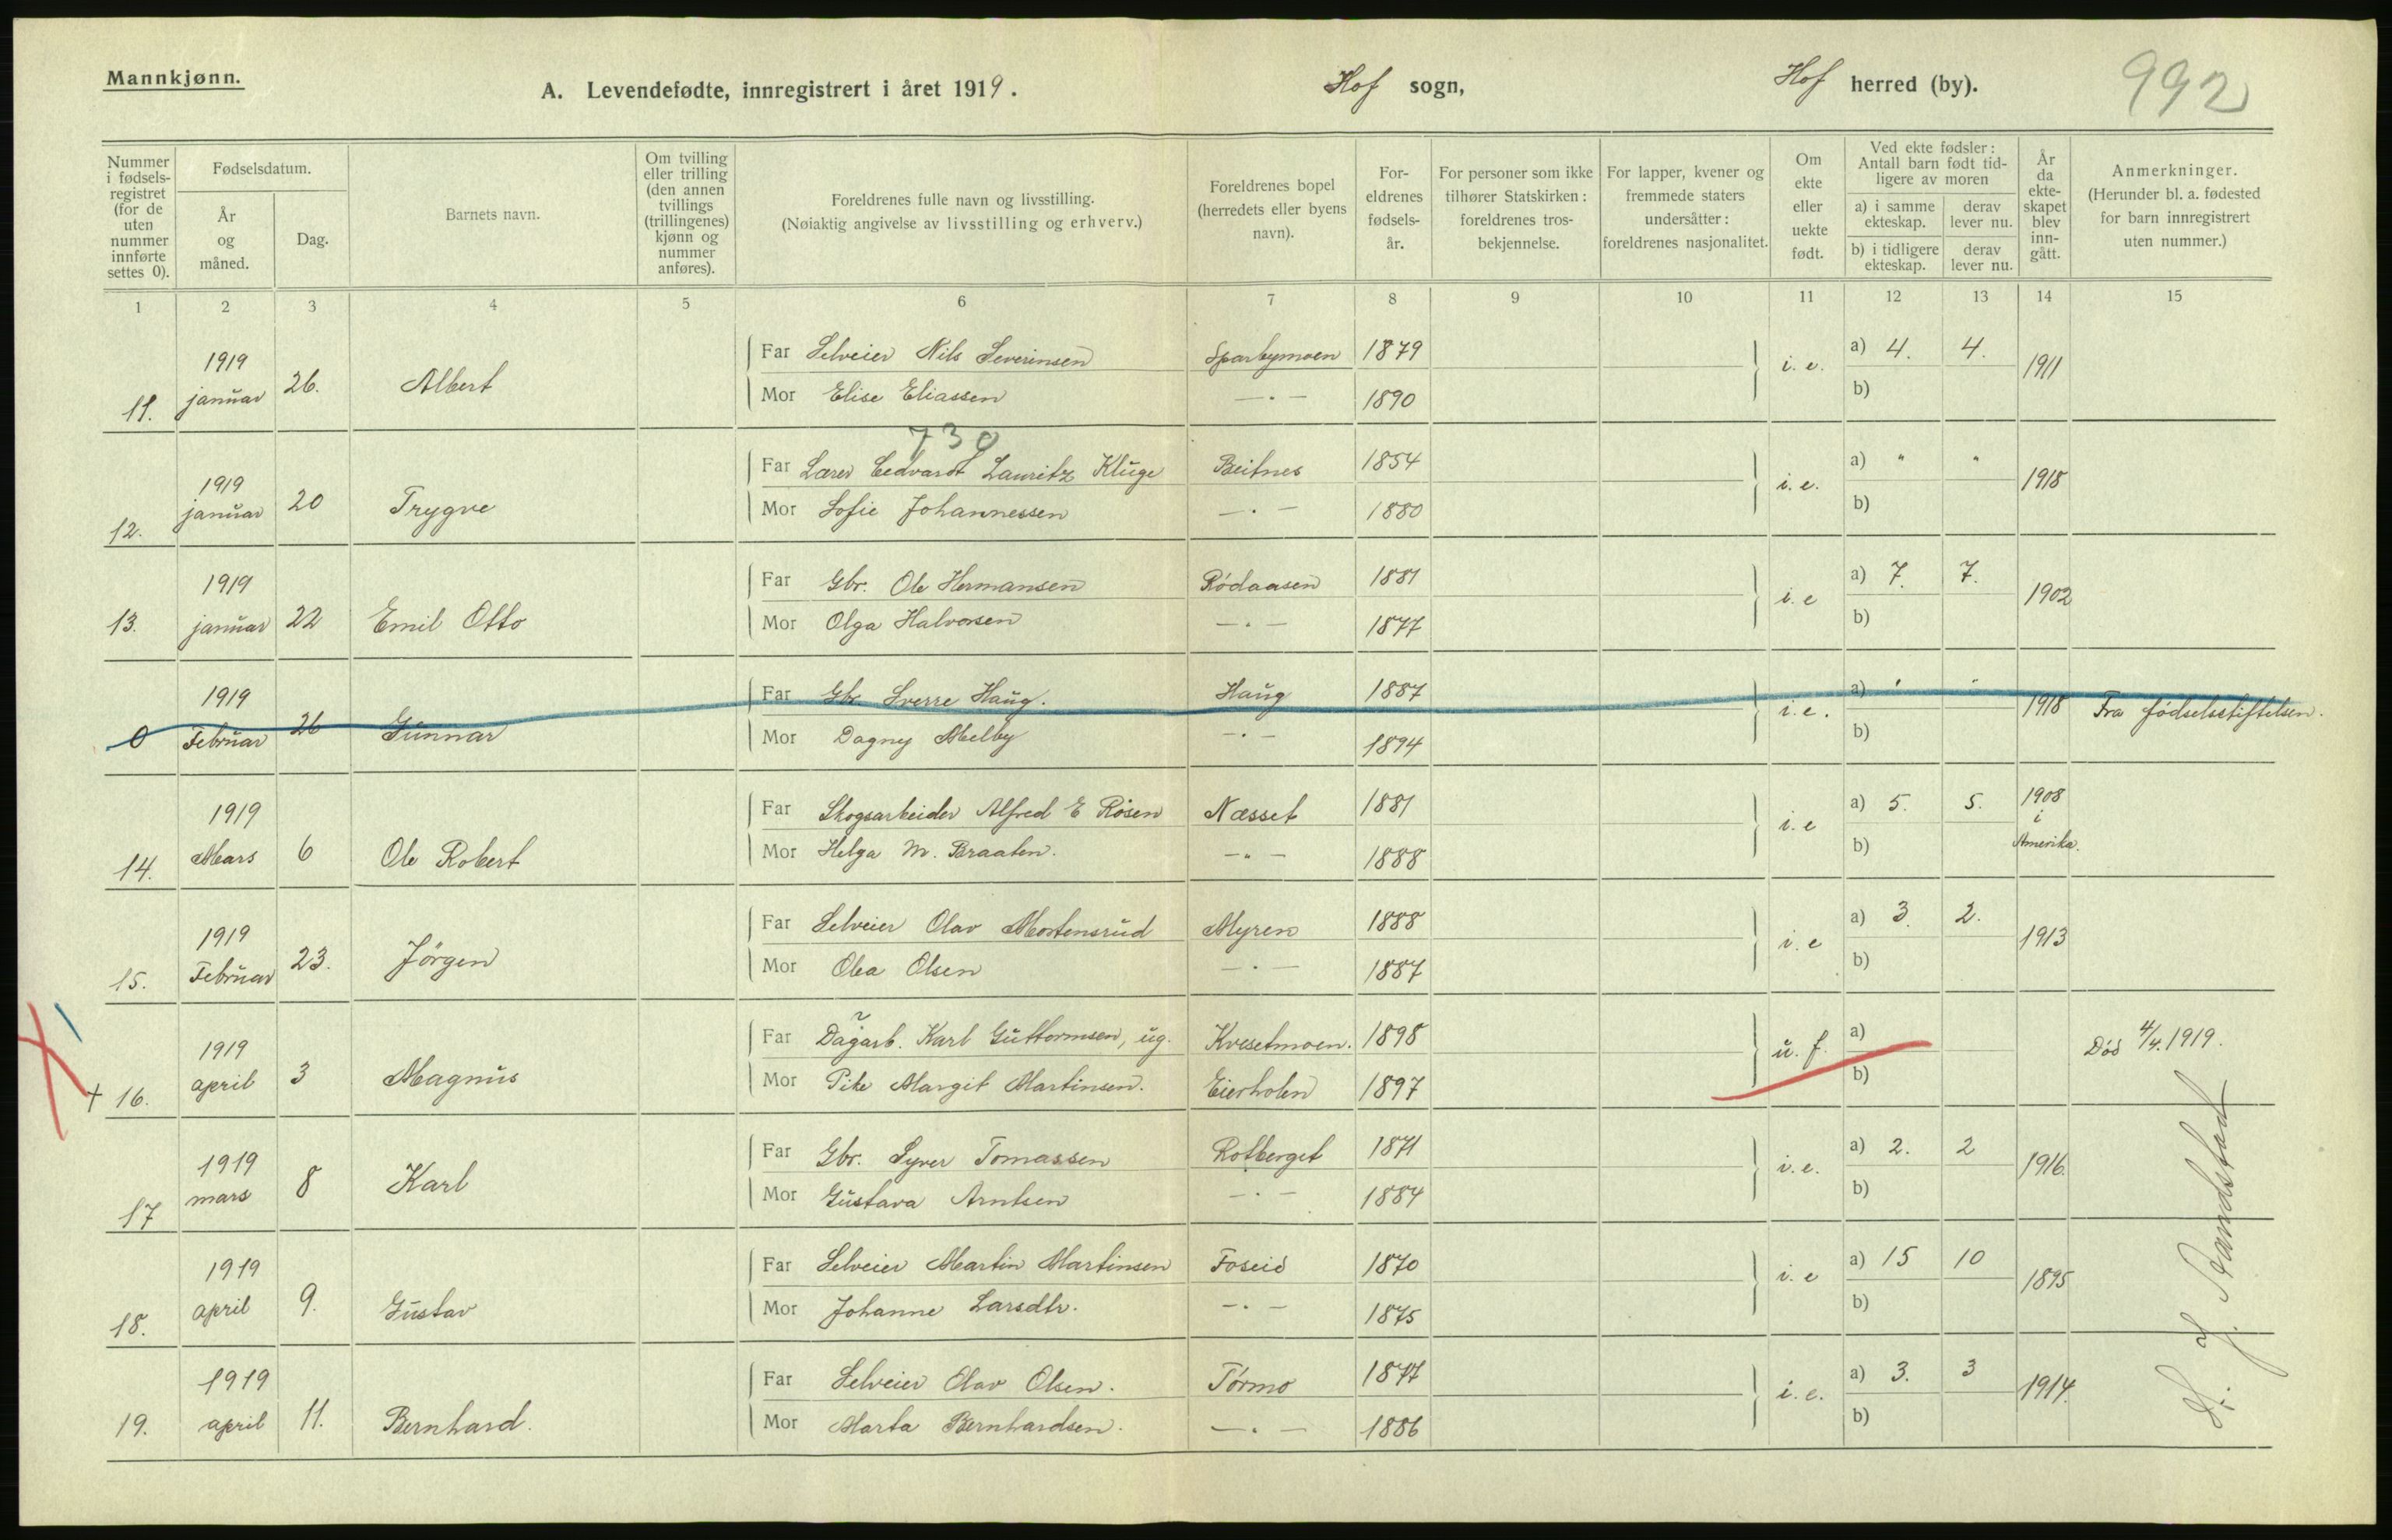 Mannkjønn.
A. Levendefødte, innregistrert i året 1919.
Hof sogn,
Hof herred (by).
992
Nummer i fødsels-registret (for de uten nummer innførte settes 0).
Fødselsdatum.
År og måned.
Dag.
Barnets navn.
Om tvilling eller trilling (den annen tvillings (trillingenes) kjønn og nummer anføres).
Foreldrenes fulle navn og livsstilling.
(Nøiaktig angivelse av livsstilling og erhverv.)
Foreldrenes bopel (herredets eller byens navn).
For-eldrenes fødsels-år.
For personer som ikke tilhører Statskirken: foreldrenes tros-bekjennelse.
For lapper, kvener og fremmede staters undersåtter: foreldrenes nasjonalitet.
Om ekte eller uekte født.
Ved ekte fødsler: Antall barn født tid-ligere av moren
a) i samme ekteskap.
derav lever nu.
b) i tidligere ekteskap.
derav lever nu.
År da ekte-skapet blev inn-gått.
Anmerkninger.
(Herunder bl. a. fødested for barn innregistrert uten nummer.)
1 2 3 4 5 6 7 8 9 10 11 12 13 14 15
11. 1919 januar 26. Albert
Far Selveier Nils Severinsen Sparbymoen 1879
Mor Elise Eliassen — " — 1890
i. e. a) 4. 4. b) 1911
730
12. 1919 januar 20 Trygve
Far Lærer Edvardt Lauritz Kluge Beitnes 1854
Mor Sofie Johannessen — " — 1880
i. e. a) " " b) 1918
13. 1919 januar 22 Emil Otto
Far Gbr. Ole Hermansen Rødaasen 1881
Mor Olga Halvorsen — " — 1877
i. e a) 7. 7. b) 1902
0 1919 Februar 26 Gunnar
Far Gbr. Sverre Haug. Haug 1887
Mor Dagny Melby — " — 1894
i. e. a) " " b) 1918 Fra fødselsstiftelsen.
14. 1919 Mars 6 Ole Robert
Far Skogsarbeider Alfred E Rosen Næsset 1881
Mor Helga M. Braaten. — " — 1888
i. e a) 5. 5. b) 1908 i Amerika.
15. 1919 Februar 23. Jörgen
Far Selveier Olav Mortensrud Myren 1888
Mor Olea Olsen — " — 1887
i. e a) 3. 2. b) 1913
+ 16. 1919 april 3 Magnus
Far Dagarb. Karl Guttormsen, ug. Kvesetmoen. 1898
Mor Pike Margit Martinsen. Eierholen 1897
u. f. a) b) Död 4/4.1919.
17 1919 mars 8 Karl
Far Gbr. Syver Tomassen Rotberget 1871
Mor Gustava Arntsen — " — 1884
i. e. a) 2. 2 b) 1916.
18. 1919 april 9. Gustav
Far Selveier Martin Martinsen Foseid 1870
Mor Johanne Larsdtr. — " — 1875
i. e a) 15 10 b) 1895
19. 1919 april 11. Bernhard.
Far Selveier Olav Olsen. Tørmo 1877
Mor Marta Bernhardsen. — " — 1886
i. e. a) 3. 3 b) 1914.